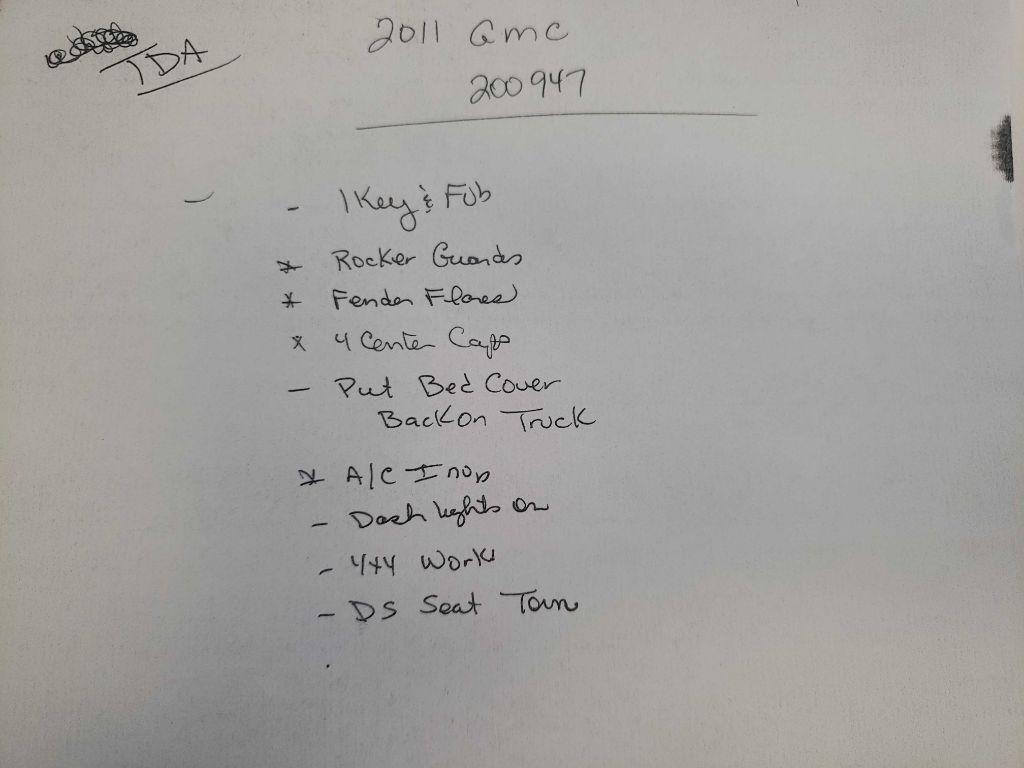 TDA
2011 Gmc
200947
- 1 Key & Fob
* Rocker Guards
* Fender Flares
* 4 Center Caps
- Put Bed Cover
Back On Truck
* A/C Inop
- Dash lights on
- 4x4 Works
- DS Seat Torn